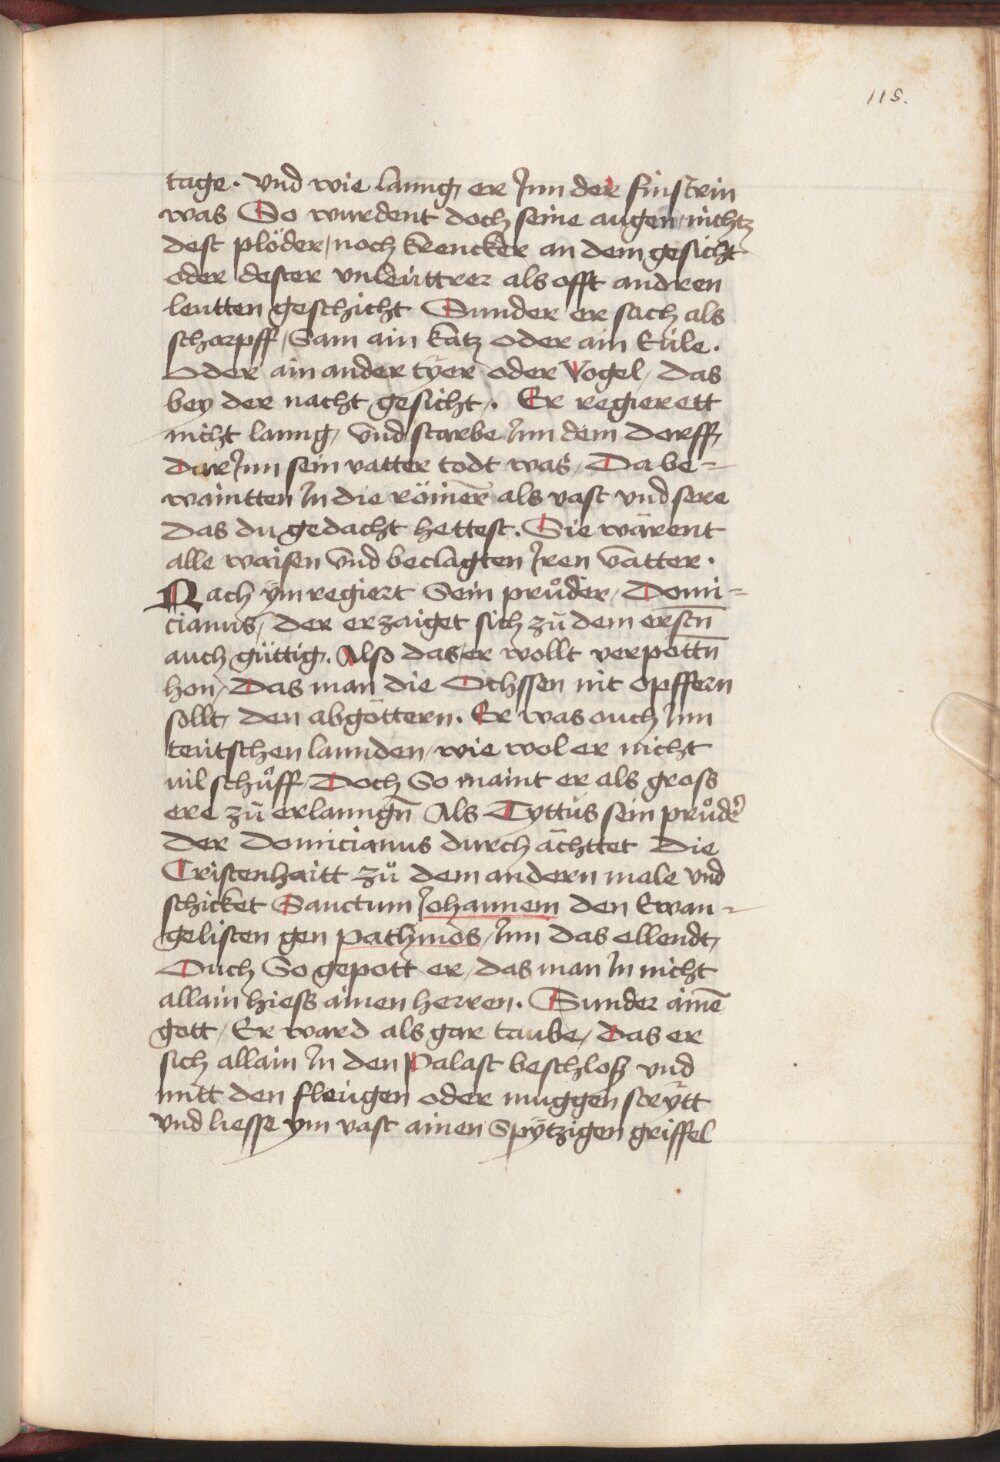 115.
tage. vnd wie lanng er Jnn der finstrin
was So wurdent doch seine augen nichtz
dest plöder / noch krencker an dem gesicht
oder dester vnleuttrer als offt andren
leutten geschicht Sunder er sach als
scharpff / Sam ain katz oder ain Eule.
Oder ain ander tÿer oder Vogel / das
bey der nacht gesicht. Er regierett
nicht lanng / vnd starbe Jnn dem dorff /
dar Jnn sein vatter todt was / Da be=
waintten In die römer als vast vnd sere
das du gedacht hettest. Sie wärent
alle waisen vnd beclagten Jren vatter.
Nach ÿm regiert Sein průder / Domi=
cianus / der erzaiget sich zů dem erstn̄
auch güttig. Also das er wollt verpottn̄
hon / Das man die Ochssen nit opffern
sollt / den abgöttern. Er was ouch Jnn
teütschen lannden / wie wol er nicht
vil schůff / Doch So maint er als gross
ere zů erlanngn̄ Als Tyttus sein průder
der domicianus durch ächttet die
Cristenhaitt zů dem andern male vnd
schicket Sanctum Johannem den Ewan=
gelisten gen pathmos / Jnn das ellendt /
Ouch So gepott er / das man In nicht
allain hiess ainen herren. Sunder ainē
gott / Er ward als gar taube / das er
sich allain In den Palast beschloß vnd
mitt den fleügen oder muggen strÿtt
vnd liesse ym vast ainen Spÿtzigen griffel